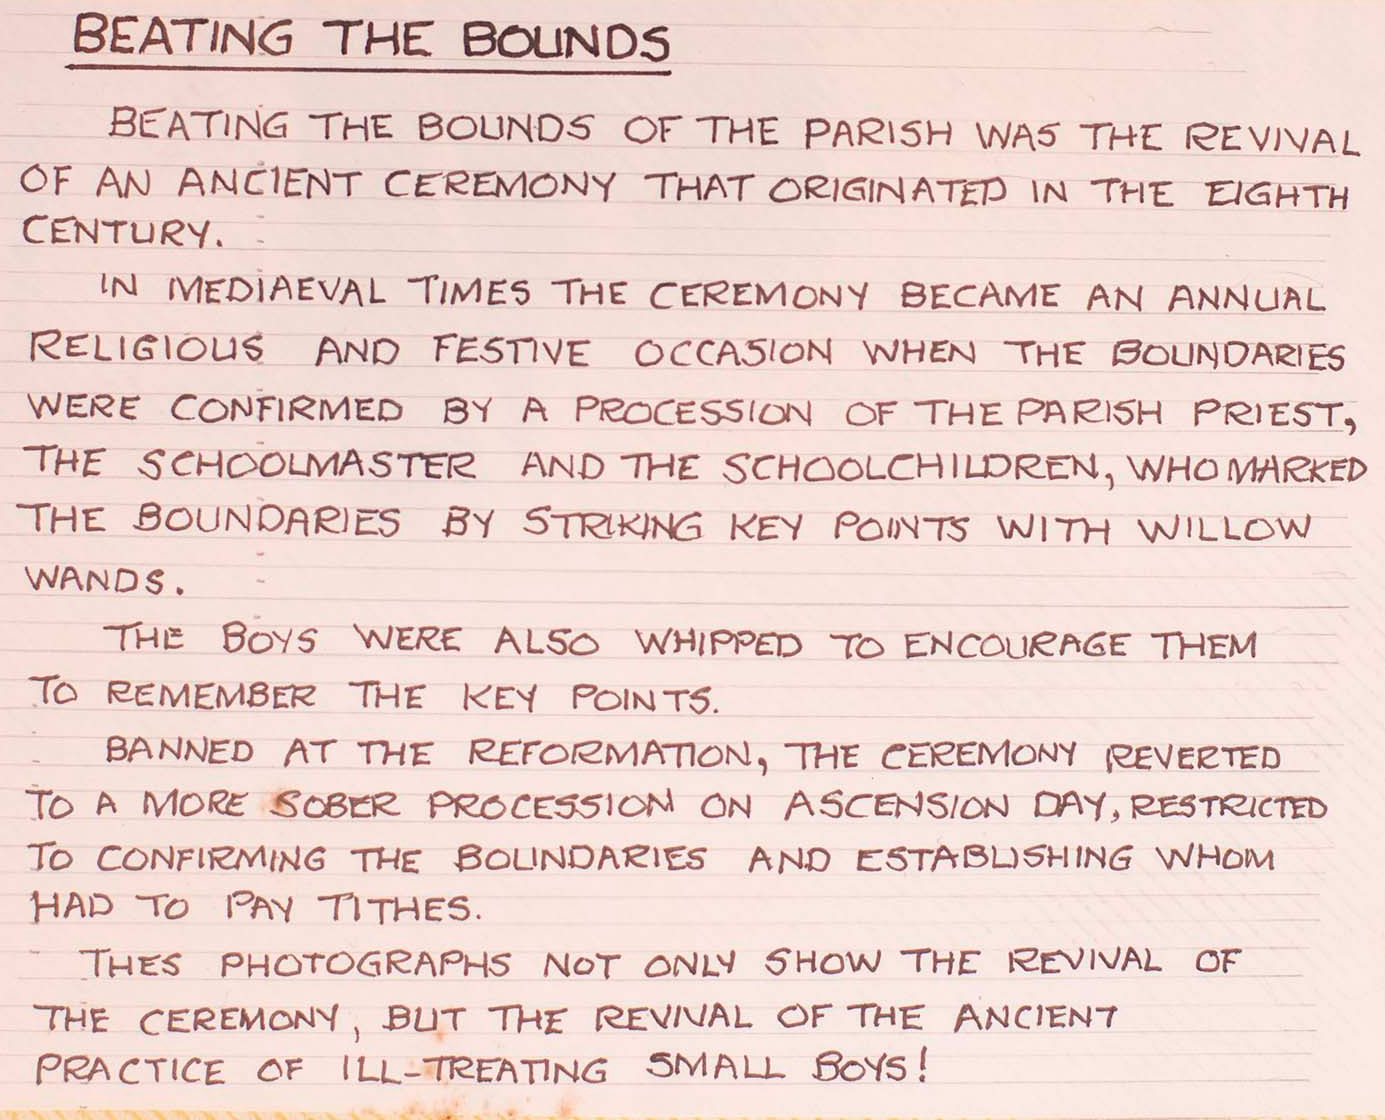 BEATING THE BOUNDS
BEATING THE BOUNDS OF THE PARISH WAS THE REVIVAL
OF AN ANCIENT CEREMONY THAT ORIGINATED IN THE EIGHTH
CENTURY.
IN MEDIAEVAL TIMES THE CEREMONY BECAME AN ANNUAL
RELIGIOUS AND FESTIVE OCCASION WHEN THE BOUNDARIES
WERE CONFIRMED BY A PROCESSION OF THE PARISH PRIEST,
THE SCHOOLMASTER AND THE SCHOOLCHILDREN, WHO MARKED
THE BOUNDARIES BY STRIKING KEY POINTS WITH WILLOW
WANDS.
THE BOYS WERE ALSO WHIPPED TO ENCOURAGE THEM
TO REMEMBER THE KEY POINTS.
BANNED AT THE REFORMATION, THE CEREMONY REVERTED
TO A MORE SOBER PROCESSION ON ASCENSION DAY, RESTRICTED
TO CONFIRMING THE BOUNDARIES AND ESTABLISHING WHOM
HAD TO PAY TITHES.
THES PHOTOGRAPHS NOT ONLY SHOW THE REVIVAL OF
THE CEREMONY, BUT THE REVIVAL OF THE ANCIENT
PRACTICE OF ILL-TREATING SMALL BOYS!